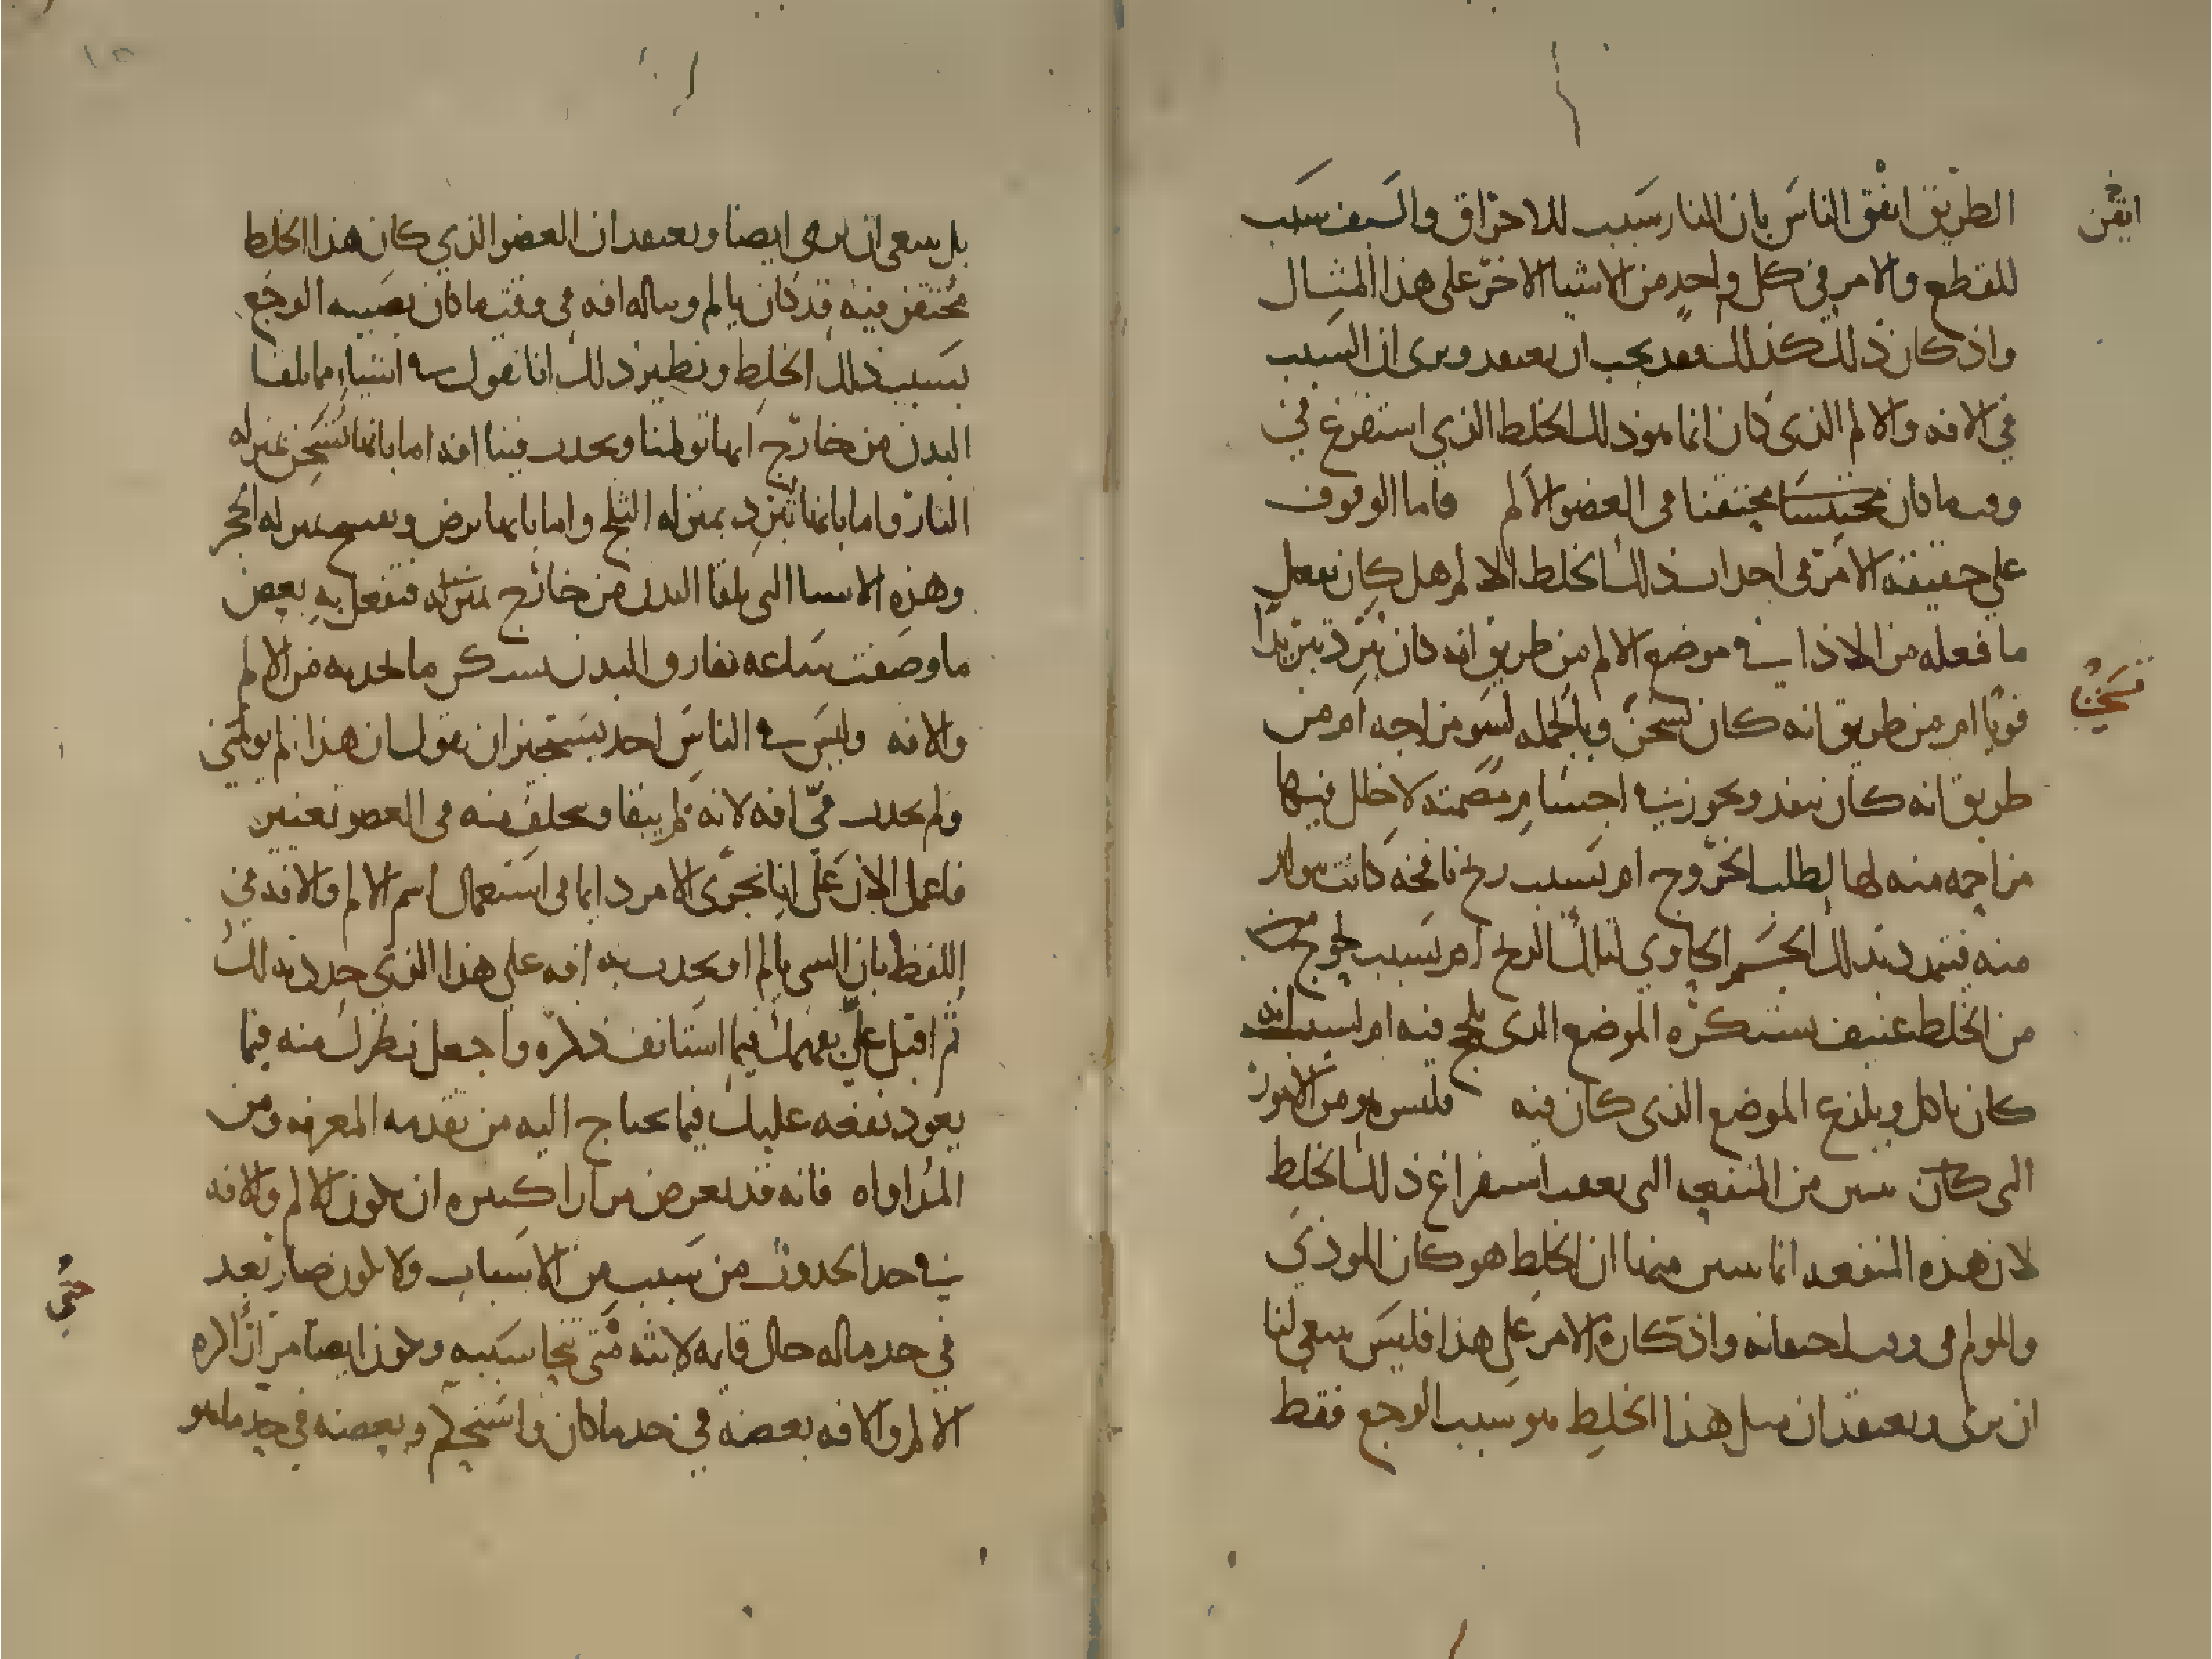 الطريق اتفق الناس بان النار سبب للاحراق والسيف سبب
ايقن
للقطع والامر في كل واحد من الاشيا الاخر على هذا المثال
واذ كان ذلك كذلك فقد يجب ان يعتقد ويرى ان السبب
في الافه والالم الذى كان انما هو ذلك الخلط الذي استفرغ في
وقت ما كان محتبسا محتقنا في العضو الالم فاما الوقوف
على حقيقة الامر في احداث ذلك الخلط الالم هل كان يفعل
ما فعله من الاذا في موضع الالم من طريق انه كان يبرد تبريدا
قويا ام من طريق انه كان يسخن وبالجمله لسو مزاجه ام من
تسخن
طريق انه كان ينفذ ويحوز في اجسام مصمته لا خلل فيها
مزاحمه منه لها لطلب الخروج ام بسبب ريح نافخه كانت تتولد
منه فتمدد بذلك الجسم الحاوي لتلك الريح ام بسبب خروج
من الخلط عنيف يستكره الموضع الذى يلج فيه ام بسبب انه
كان ياكل ويلذع الموضع الذى كان فيه فليس هو من الامور
التى كانت تبين من المنفعه التى بعقب استفراغ ذلك الخلط
لان هذه المنفعه انما تبين منها ان الخلط هو كان الموذي
والمولم في وقت احتقانه واذ كان الامر على هذا فليس ينبغي لنا
ان نرى ونعتقد ان مثل هذا الخلط هو سبب الوجع فقط
بل ينبغي ان نرى ايضا ونعتقد ان العضو الذي كان هذا الخلط
محتقن فيه قد كان يالم ويناله افه في وقت ما كان يصيبه الوجع
بسبب ذلك الخلط ونظير ذلك انا نقول في اشياء مما يلقا
البدن من خارج انها تولمنا ويحدث فينا افه اما بانها تسخن بمنزله
النار واما بانها تبرد بمنزله الثلج واما بانها ترض وتفسخ بمنزله الحجر
وهذه الاشيا التى تلقا البدن من خارج فتفعل به بعض
ما وصفت ساعه تفارق البدن يسكن ما تحدثه من الالم
والافه وليس في الناس احد يستجيز ان يقول ان هذا لم يولمني
ولم يحدث في افه لانه لم يبقا ويخلف منه في العضو تغيير
فاعمل الان على انا نجرى الامر دايما في استعمال اسم الالم والافه في
اللفظ بان الشى يالم او يحدث به افه على هذا الذى حددته لك
ثم اقبل على بفهمك فيما استانف ذكره واجعل نظرك منه فيما
يعود نفعه عليك فيما تحتاج اليه من تقدمه المعرفه ومن
المداواه فانه قد يعرض مرارا كثيره ان يكون الالم والافه
في حد الحدوث من سبب من الاسباب ولا يكون صار بعد
حتى
في حد ما له حال قايمه لابثه متى تنحا سببه ويكون ايضا مرارا كثيره
الالم والافه بعضه في حد ما كان واستحكم وبعضه في حد ما هو